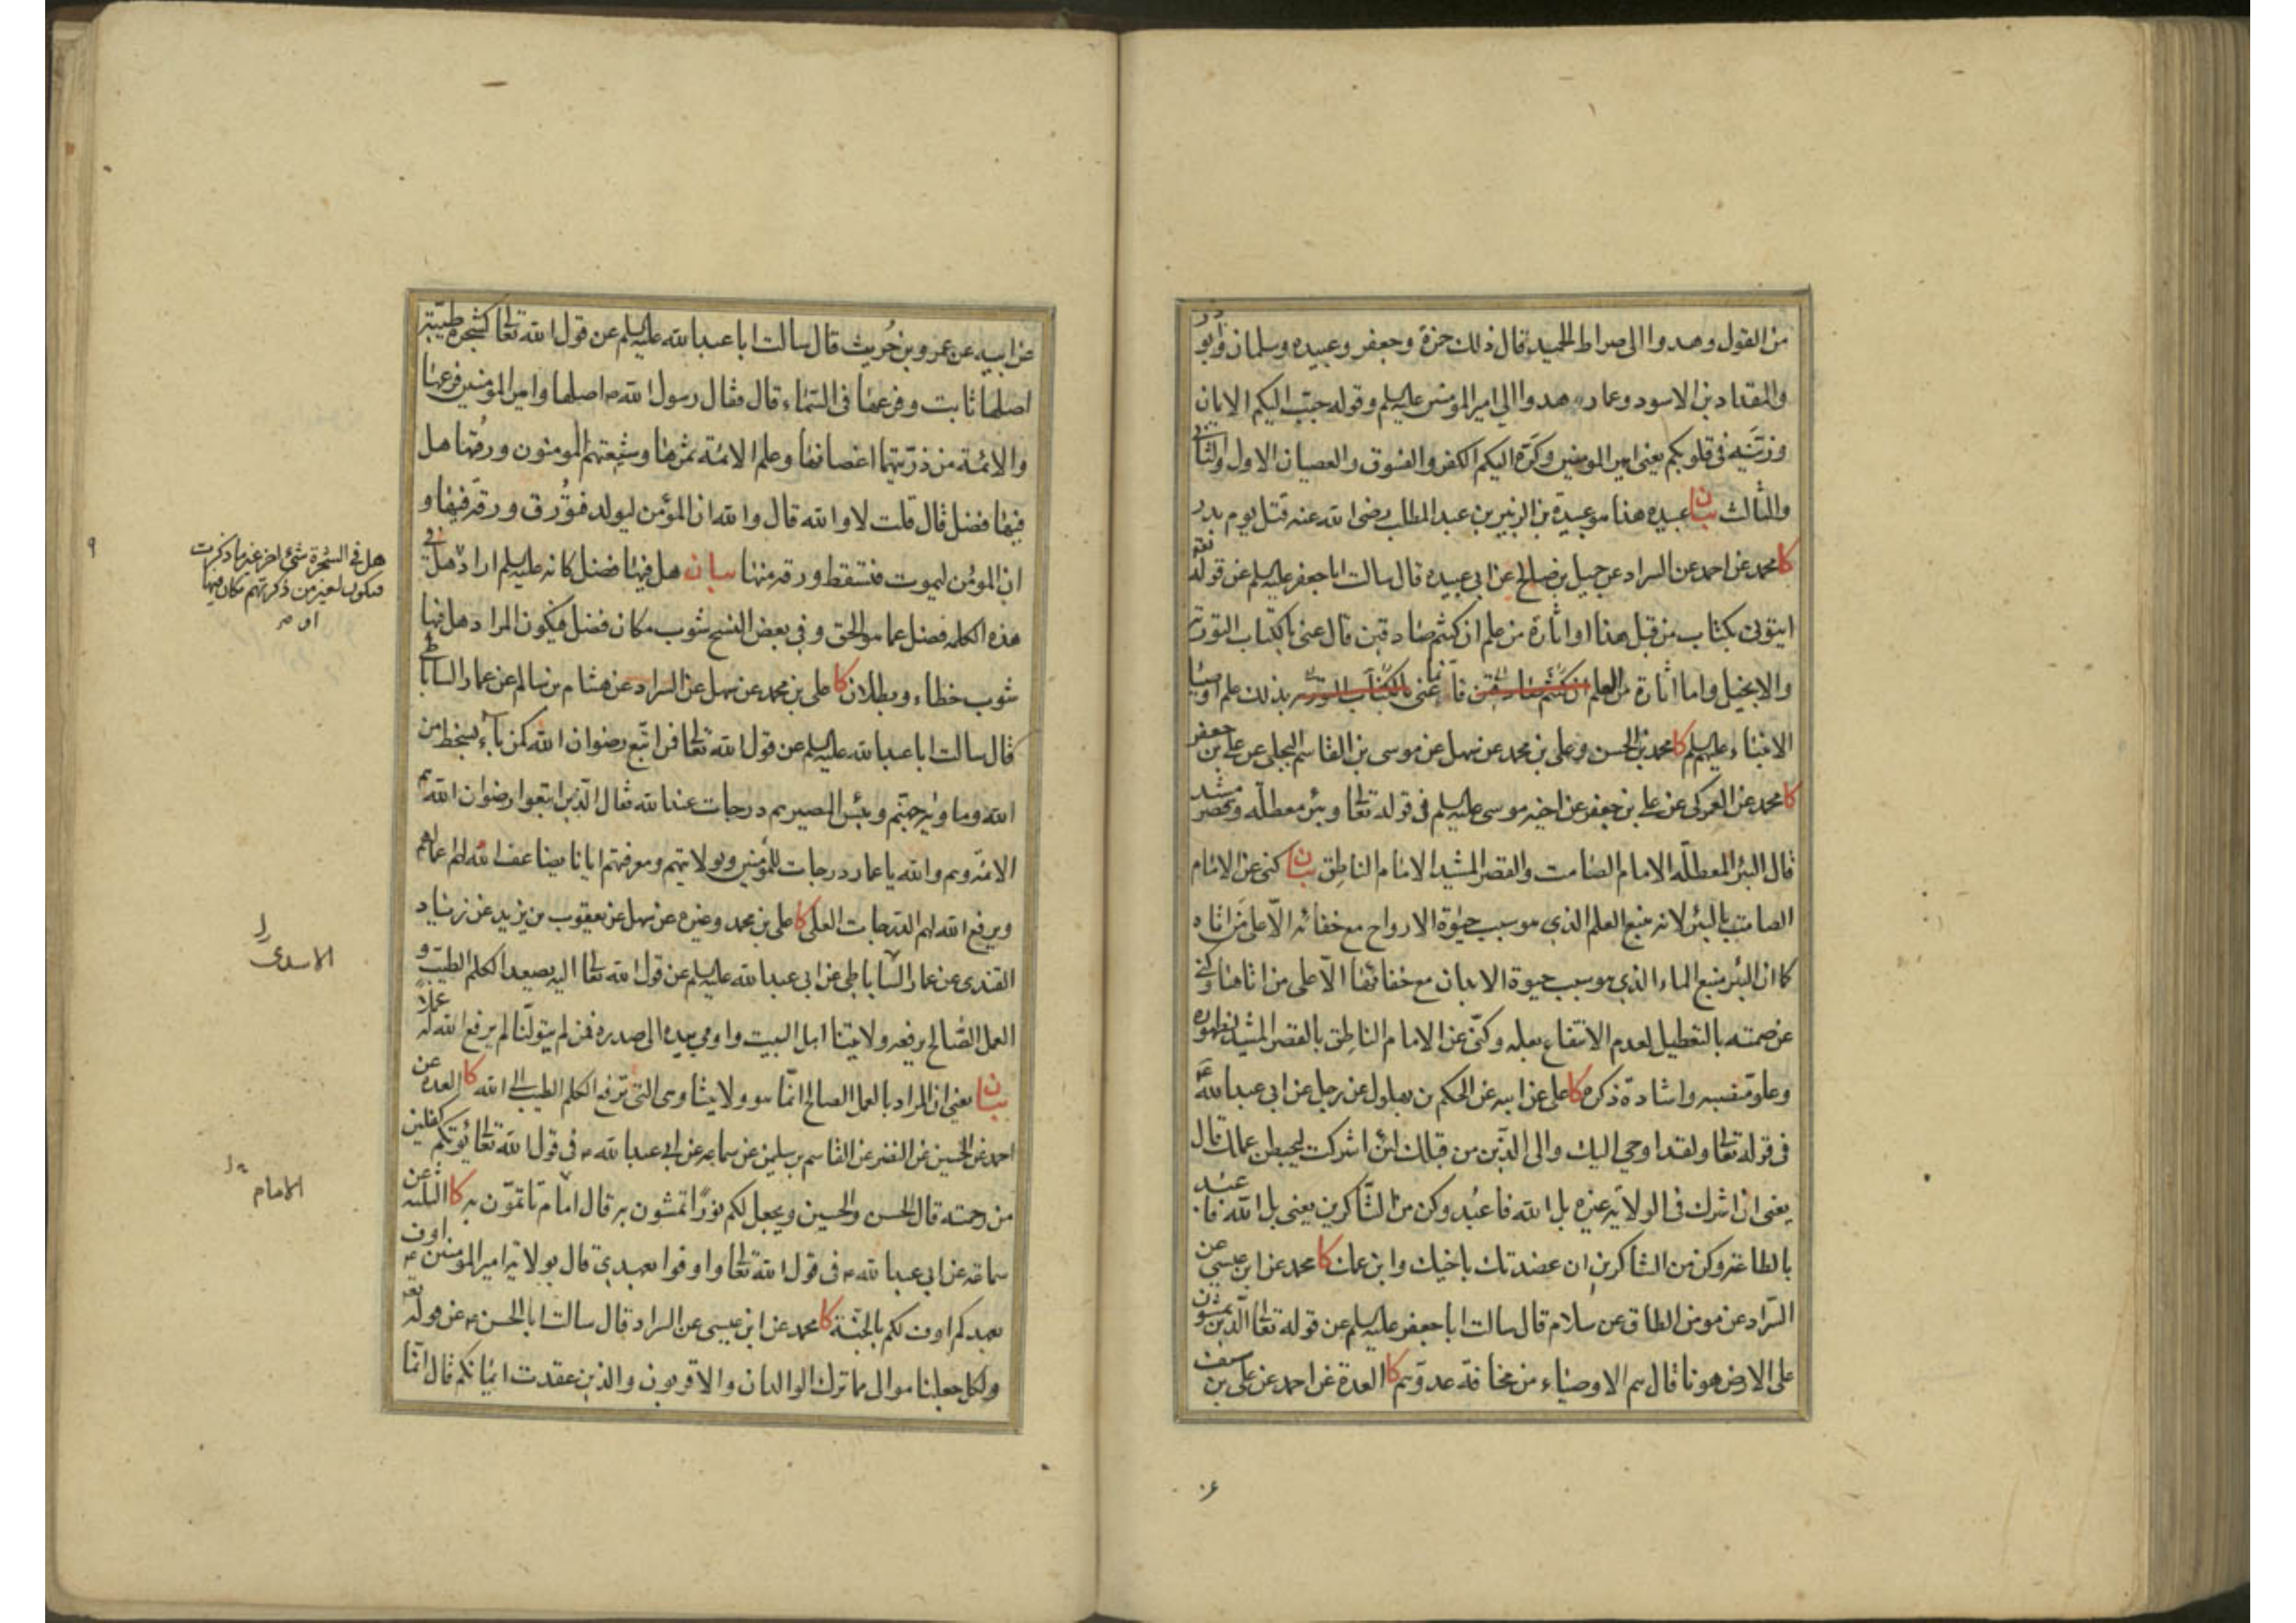 من القول وهدوا الى صراط الحميد قال ذلك حمزة وجعفر وعبيده وسلمان وابو ذر
والمقداد بن الاسود وعمار هدوا الى امير المومنين عليه السلم وقوله حبّب اليكم الايمان
وزيّنه في قلوبكم يعنى امير المومنين وكرّه اليكم الكفر والفسوق والعصيان الاول والثاني
والثالث بيان عبيده هذا هو عبيدة بن الزبير بن عبد المطلب رضى الله عنه قتل يوم بدر
كا محمد عن احمد عن السراد عن جميل بن صالح عن ابي عبيده قال سالت ابا جعفر عليه السلم عن قوله تعه
ايتونى بكتاب من قبل هذا او اثارة من علم ان كنتم صادقين قال عنى بالكتاب التورية
والانجيل واما اثارة من العلم ان كنتم صادقين فانما عنى بالكتاب التورية بذلك علم اوصيا
الانبياء عليهم السلم كا محمد بن الحسن وعلى بن محمد عن سهل عن موسى بن القاسم البجلى عن علي بن جعفر
كا محمد عن العمركى عن علي بن جعفر عن اخيه موسى عليه السلم فى قوله تعالى وبئر معطلّه وقصر مشيد
قال البئر المعطلّه الامام الصامت والقصر المشيد الامام الناطق بيان كنى عن الامام
الصامت بالبئر لانه منبع العلم الذي هو سبب حيوة الارواح مع خفائه الّا على من اتاه
كما ان البئر منبع الماء الذي هو سبب حيوة الابدان مع خفائها الّا على من اتاها وكنى
عن صمته بالتعطيل لعدم الانتفاع بعلمه وكنّى عن الامام الناطق بالقصر المشيد لظهوره
وعلو منصبه واشادة ذكره كا على عن ابيه عن الحكم بن بهلول عن رجل عن ابي عبد الله ع
فى قوله تعالى ولقد اوحي اليك والى الذين من قبلك لئن اشركت ليحبطن عملك قال
يعنى ان اشرك فى الولاية غيره بل الله فاعبُد وكن من الشّاكرين يعنى بل الله فاعبد
بالطاعة وكن من الشاكرين ان عضدتك باخيك وابن عمك كا محمد عن ابن عيسى عن
السّراد عن مومن الطاق عن سلام قال سالت ابا جعفر عليه السلم عن قوله تعالى الذين يمشون
على الارض هونا قال هم الاوصياء من مخافة عدوّهم كا العدة عن احمد عن على بن سيف
عن ابيه عن عمرو بن حُريث قال سالت ابا عبد الله عليه السلم عن قول الله تعالى كشجرة طيّبة
اصلها ثابت وفرعها فى السّماء قال فقال رسول الله ص اصلها وامير المومنين فرعها
والائمة من ذرّيتهما اغصانها وعلم الائمة ثمرها وشيعتهم المومنون ورقها هل
فيها فضل قال قلت لا والله قال والله ان المؤمن ليولد فتُورق ورقة فيها و
ان المؤمن ليموت فتسقط ورقة منها بيان هل فيها فضل كانه عليه السلم اراد هل فى
هذه الكلمه فضل عما هو الحق وفي بعض النسخ شوب مكان فضل فيكون المراد هل فيها
شوب خطاء وبطلان كا على بن محمد عن سهل عن السراد عن هشام بن سالم عن عمار الساباطى
قال سالت ابا عبد الله عليه السلم عن قول الله تعالى افمن اتّبع رضوان الله كمن باء بسخط من
الله وماويه جهنّم وبئس المصير هم درجات عند الله فقال الذين اتبعوا رضوان الله هم
الائمّه وهم والله يا عمار درجات للمؤمنين وبولايتهم ومعرفتهم ايانا يضاعف الله لهم اعمالهم
ويرفع الله لهم الدرجات العلى كا على بن محمد وغيره عن سهل عن يعقوب بن يزيد عن زياد
القندى عن عمار السّاباطى عن ابى عبد الله عليه السلم عن قول الله تعالى اليه يصعد الكلم الطيّب و
العمل الصّالح يرفعه ولايتنا اهل البيت واومى بيده الى صدره فمن لم يتولّنا لم يرفع الله له عملا
بيان يعنى ان المراد بالعمل الصالح انّما هو ولايتنا وهى التى ترفع الكلم الطيب الى الله كا العدة عن
احمد عن الحسين عن النضر عن القاسم بن سليمن عن سماعه عن ابى عبد الله ع فى قول الله تعالى يؤتكم كفلين
من رحمته قال الحسن والحسين ويجعل لكم نورًا تمشون به قال امام تاتمّون به كا الثلثه عن
سماعه عن ابى عبد الله ع فى قول الله تعالى واوفوا بعهدي قال بولاية امير المومنين ع اوف
بعهدكم اوف لكم بالجنّة كا محمد عن ابن عيسى عن السراد قال سالت ابا الحسن ع عن قوله تعه
ولكل جعلنا موالى مما ترك الوالدان والاقربون والذين عقدت ايمانكم قال انّما
هل فى الشجرة شئ اخر غير ما ذكرت
فيكون لغير من ذكرتهم مكان فيها
الاسدى
الامام
٩